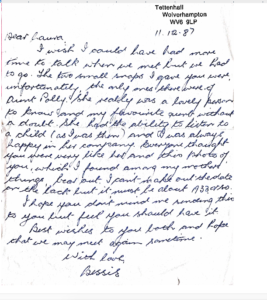 Tettenhall
Wolverhampton
WV6 9LP
11.12.87
Dear Laura,
I wish I could have had more
time to talk when we met but we had
to go. The two small snaps I gave you were,
unfortunately, the only ones there were of
Aunt Polly. She really was a lovely person
to know and my favourite aunt without
a doubt. She had the ability to listen to
a child (as I was then) and I was always
happy in her company. Everyone thought
you were very like her and this photo of
you, which I found among my mother's
things, bears out. I can't make out the date
on the back but it must be about
I hope you don't mind me sending this
to you but feel you should have it.
Best wishes to you both and hope
that we may meet again sometime.
With love,
Bessie